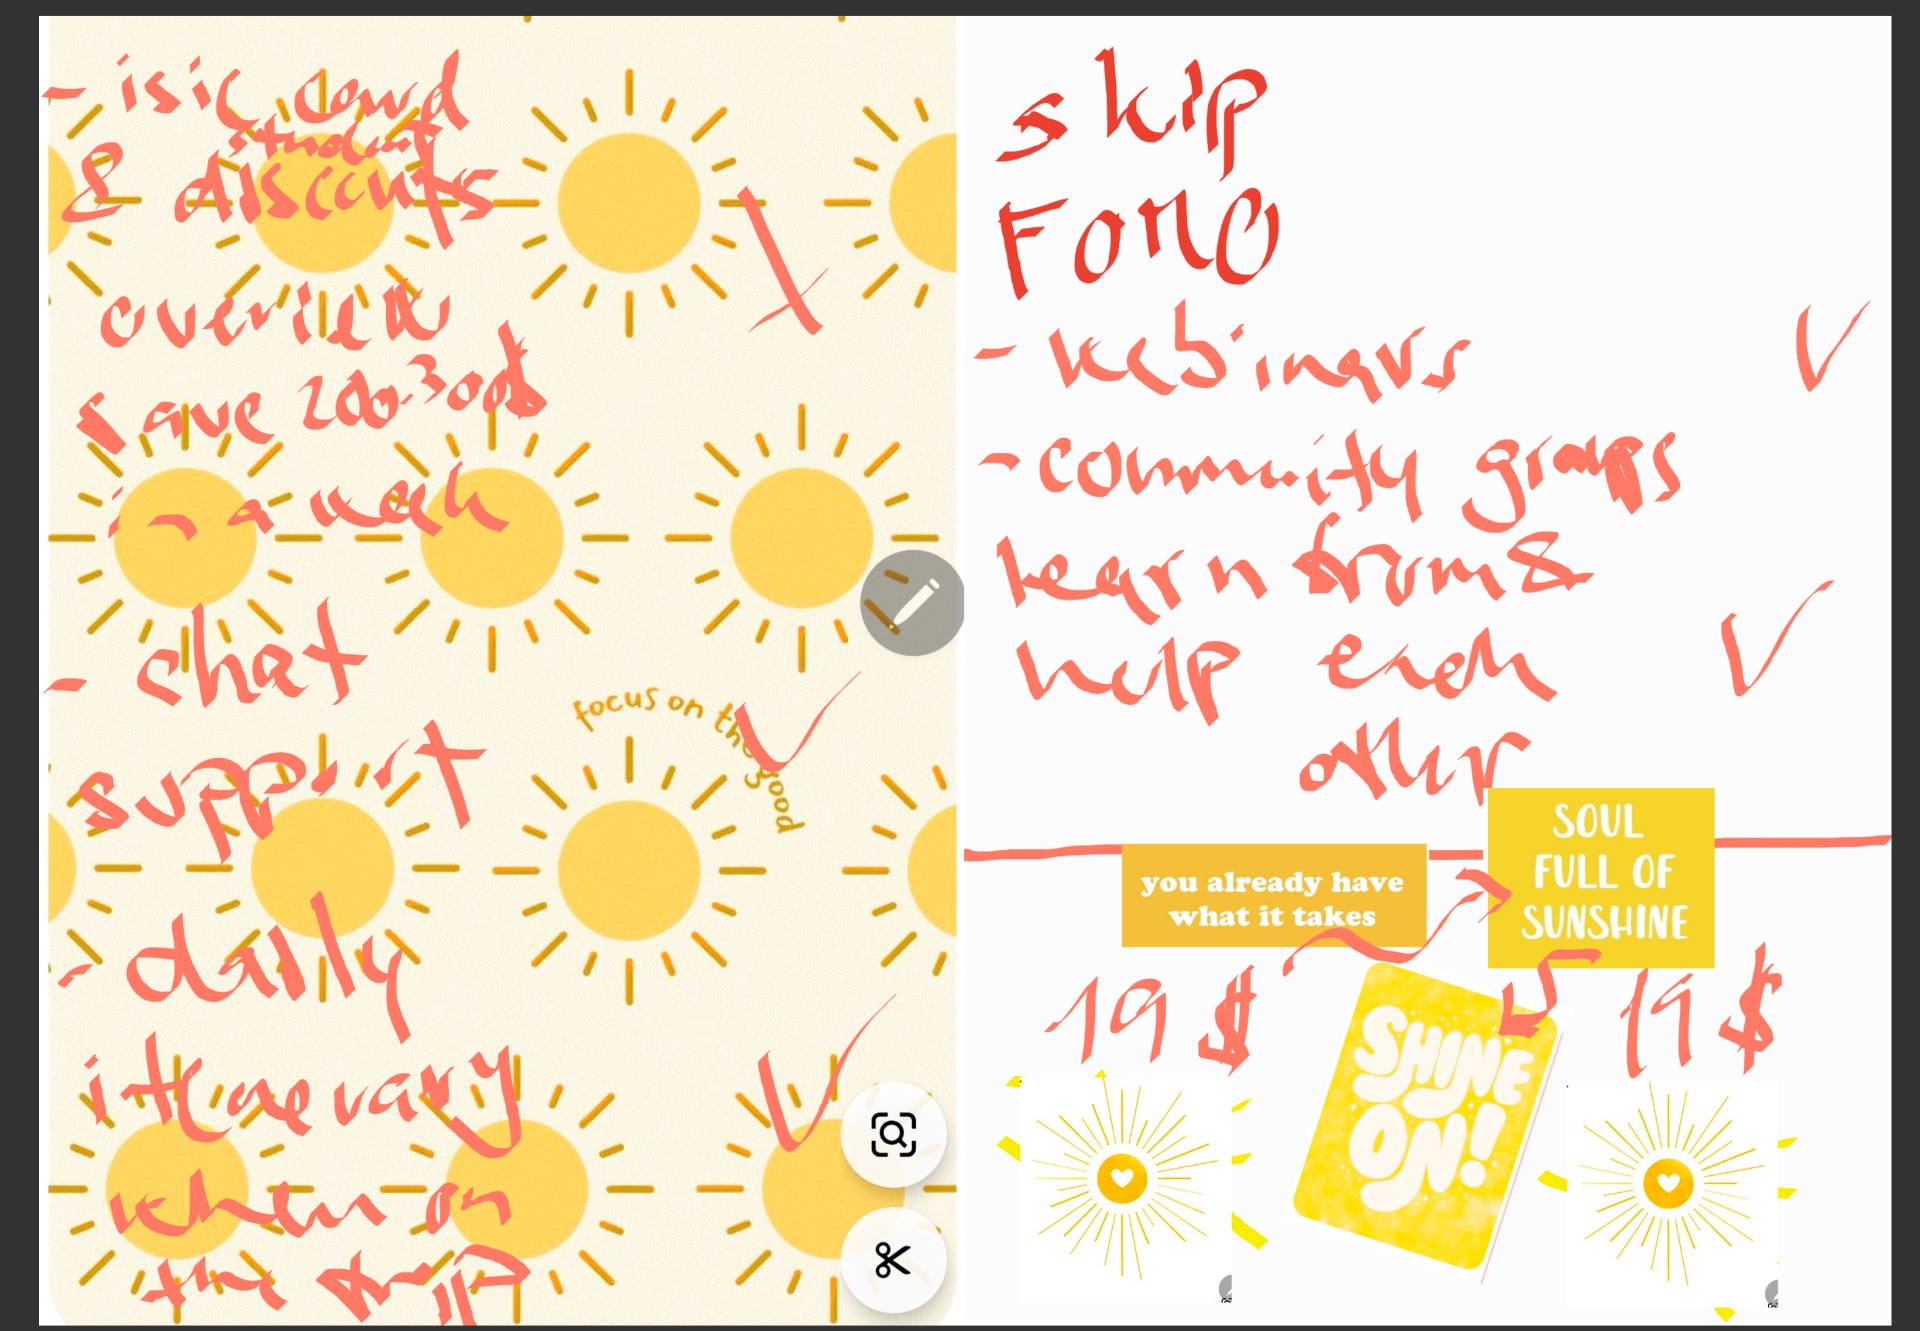 - isic card
student
& discounts
overview
save 200-300$
in a week
- chat
support
focus on the good
- daily
itinerary
when on
the trip
skip
FOMO
- webinars
- community groups
learn from &
help each
other
you already have
what it takes
SOUL
FULL OF
SUNSHINE
19 $
19 $
SHINE
ON!